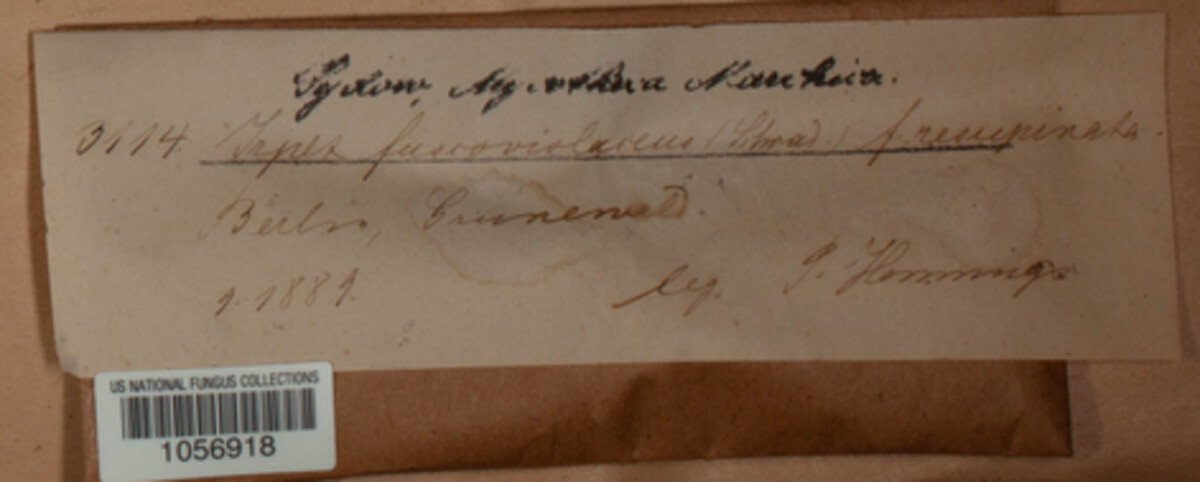 Sydow, Mycotheca Marchica.
3114 Irpex fuscoviolaceus (Schrad.) f. resupinata.
Berlin, Grunewald.
9. 1889. leg. P. Hennings
US NATIONAL FUNGUS COLLECTIONS
1056918